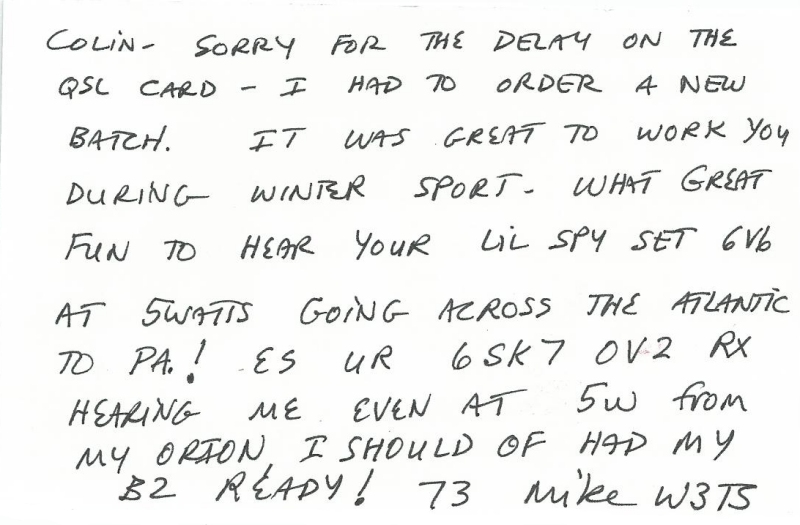 COLIN- SORRY FOR THE DELAY ON THE
QSL CARD - I HAD TO ORDER A NEW
BATCH. IT WAS GREAT TO WORK YOU
DURING WINTER SPORT- WHAT GREAT
FUN TO HEAR YOUR LIL SPY SET 6V6
AT 5WATTS GOING ACROSS THE ATLANTIC
TO PA.! ES UR 6SK7 OV2 RX
HEARING ME EVEN AT 5W from
MY ORION, I SHOULD OF HAD MY
B2 READY! 73 Mike W3TS